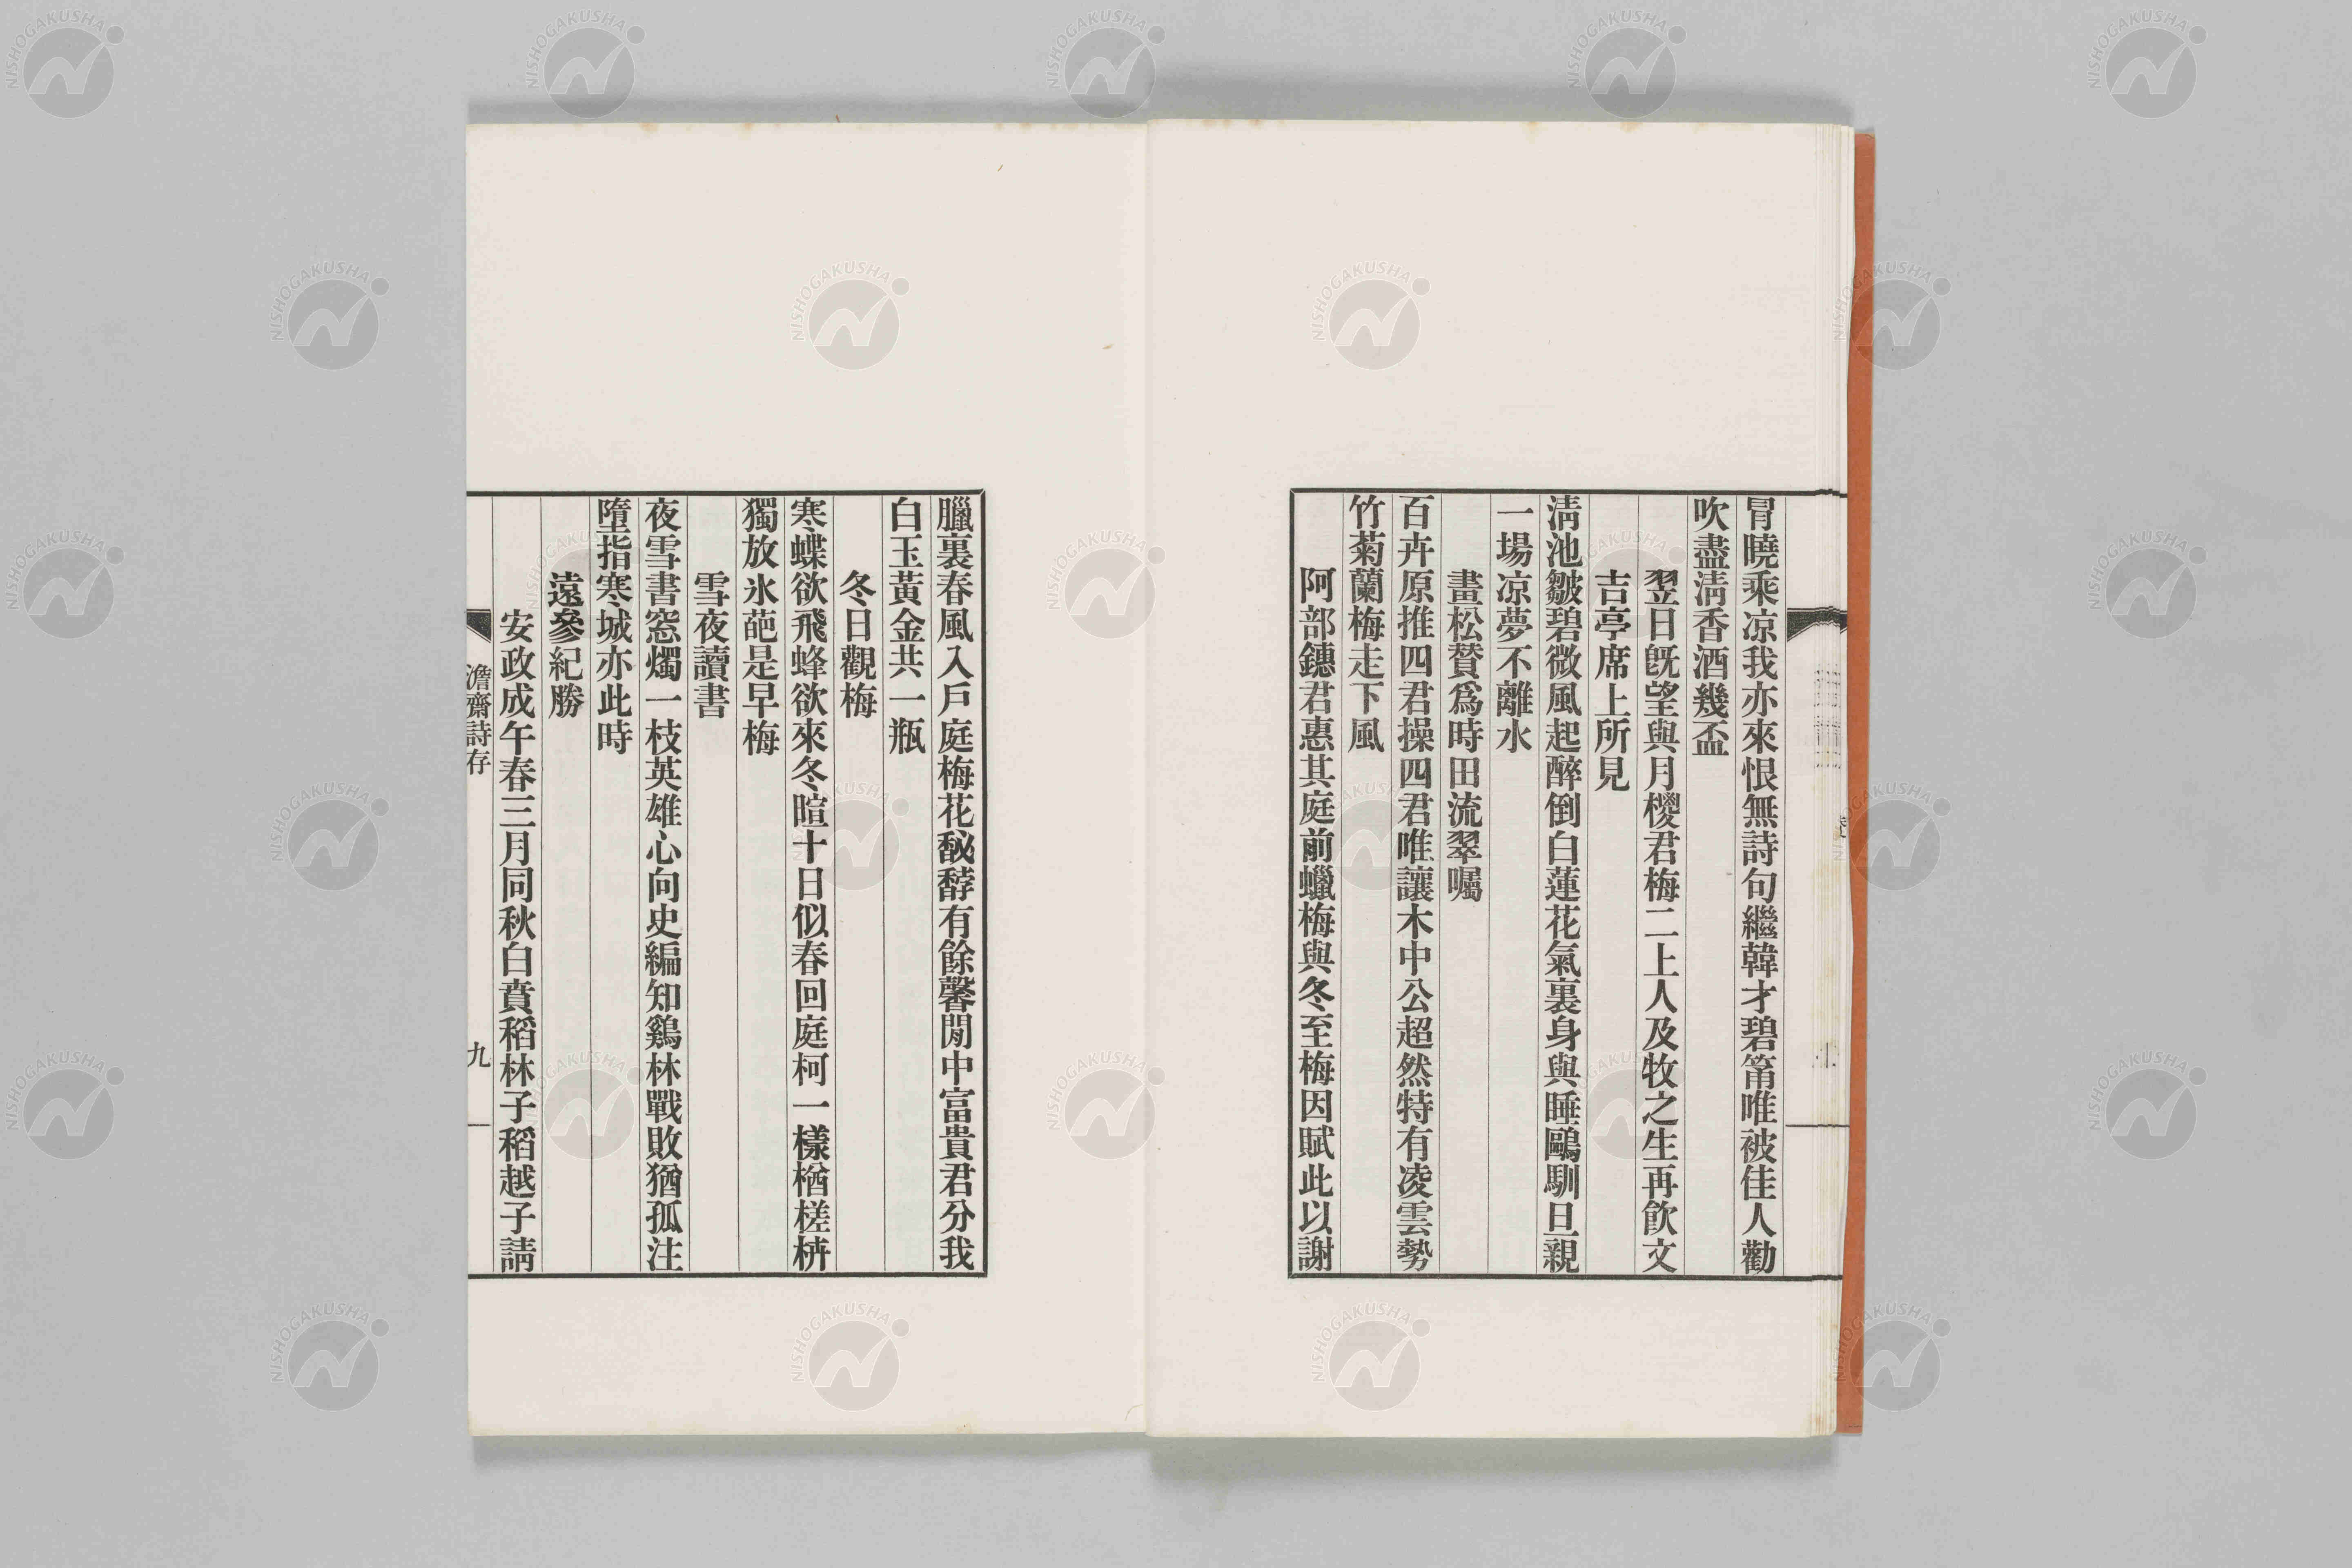 冒曉乘凉我亦來恨無詩句繼韓才碧筩唯被佳人勸
吹盡淸香酒幾盃
翌日旣望與月櫻君梅二上人及牧之生再飮文
吉亭席上所見
淸池皺碧微風起醉倒白蓮花氣裏身與睡鷗馴且親
一場凉夢不離水
畫松贊爲時田流翠囑
百卉原推四君操四君唯讓木中公超然特有凌雲勢
竹菊蘭梅走下風
阿部鏸君惠其庭前蠟梅與冬至梅因賦此以謝
臘裏春風入戶庭梅花馝馞有餘馨閒中富貴君分我
白玉黃金共一瓶
冬日觀梅
寒蝶欲飛蜂欲來冬暄十日似春回庭柯一樣楢槎枿
獨放氷葩是早梅
雪夜讀書
夜雪書窓燭一枝英雄心向史編知鷄林戰敗猶孤注
墮指寒城亦此時
遠參紀勝
安政戊午春三月同秋白賁稻林子稻越子請
澹齋詩存
九
NISHOGAKUSHA